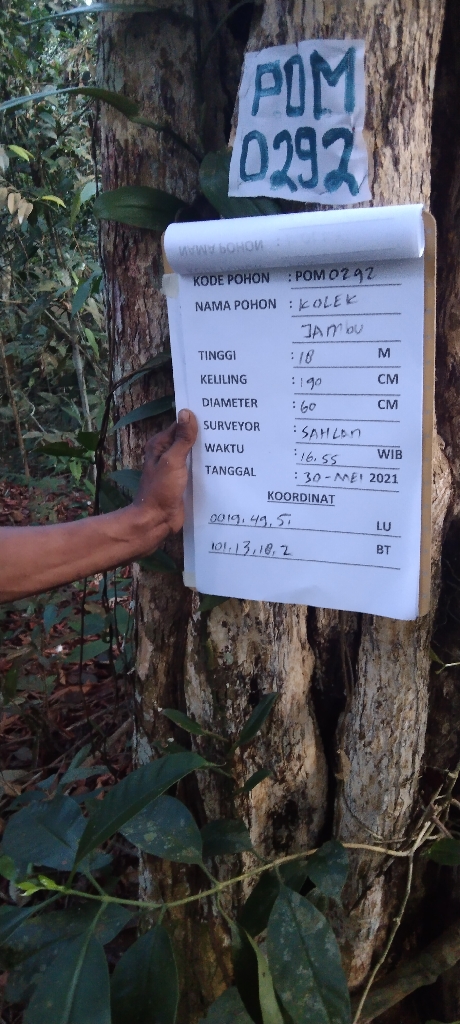 POM
0292
NAMA POHON
KODE POHON : POM 0292
NAMA POHON : KOLEK
JAMBU
TINGGI : 18 M
KELILING : 190 CM
DIAMETER : 60 CM
SURVEYOR : SAHLAN
WAKTU : 16.55 WIB
TANGGAL : 30-MEI 2021
KOORDINAT
0019.49.5. LU
101.13.18.2 BT